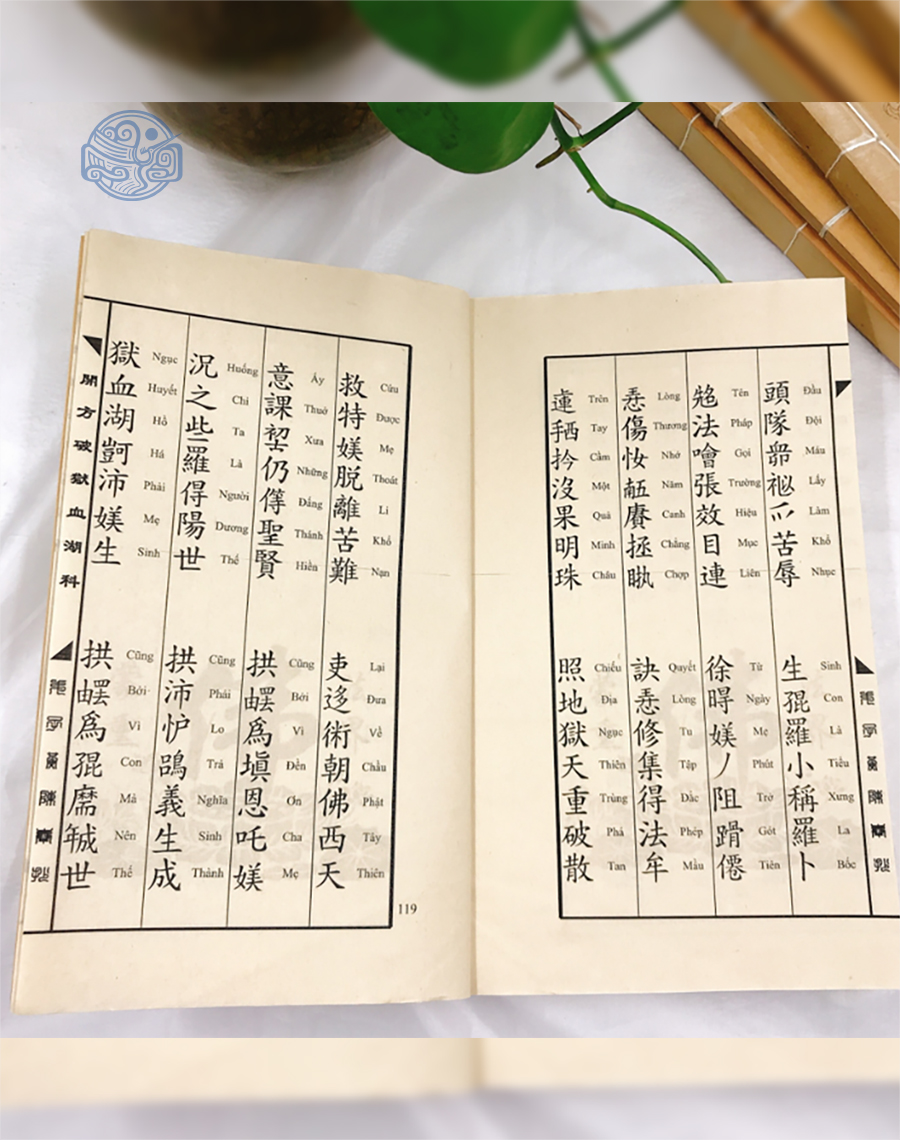 頭隊苦辱
Đầu Đội Máu Lấy Làm Khổ Nhục
生猑羅小稱羅卜
Sinh Con Là Tiểu Xưng La Bốc
法噲張效目連
Tên Pháp Gọi Trường Hiệu Mục Liên
徐㝵媄丿阻僊
Từ Ngày Mẹ Phút Trở Gót Tiên
傷賡拯
Lòng Thương Nhớ Năm Canh Chẳng Chợp
訣修集得法牟
Quyết Lòng Tu Tập Dắc Phép Mầu
蓮拪扲沒果明珠
Trên Tay Cầm Một Quả Minh Châu
照地獄天重破散
Chiếu Địa Ngục Thiên Trùng Phá Tan
救特媄脱離苦難
Cứu Được Mẹ Thoát Li Khổ Nạn
吏迻術朝佛西天
Lại Đưa Về Chầu Phật Tây Thiên
119
意課仍等聖賢
Ấy Thuở Xưa Những Đấng Thánh Hiền
拱爲填恩吒媄
Cũng Bởi Vì Đền Ơn Cha Mẹ
況之些羅得陽世
Huống Chi Ta Là Người Dương Thế
拱沛義生成
Cũng Phải Lo Trả Nghĩa Sinh Thành
獄血湖沛媄生
Ngục Huyết Hồ Há Phải Mẹ Sinh
拱爲猑世
Cũng Bởi Vì Con Mà Nên Thế
開方破獄血湖科